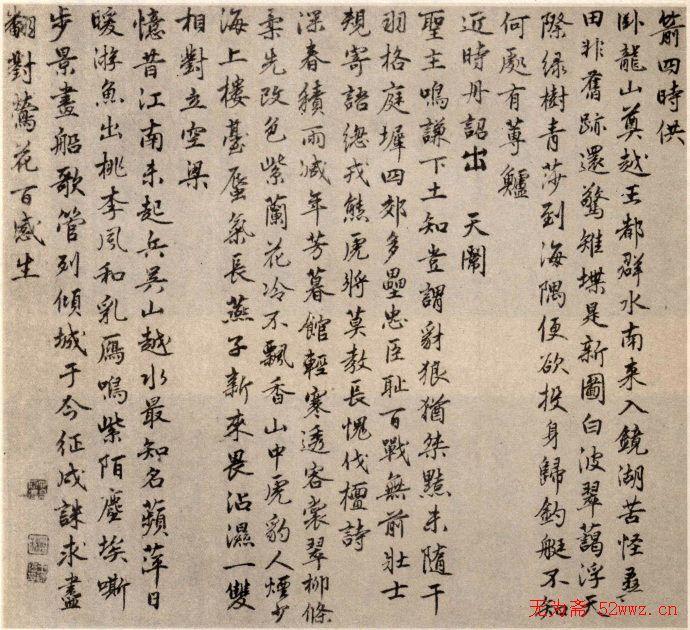 箭四時供
卧龍山奠越王都群水南来入鏡湖苦怪桑
田非舊跡還驚雉堞是新圖白波翠藹浮天
際緑樹青莎到海隅便欲投身歸釣艇不知
何處有蓴鱸
近時丹詔出 天闈
聖主鳴謙下土知豈謂豺狼猶桀黠未隨干
羽格庭墀四郊多壘忠臣耻百戰無前壯士
規寄語總戎熊虎將莫教長愧伐檀詩
深春積雨減年芳暮館輕寒透客裳翠柳條
柔先改色紫蘭花冷不飄香山中虎豹人煙少
海上樓臺蜃氣長燕子新來畏沾濕一雙
相對立空梁
憶昔江南未起兵吴山越水最知名蘋萍日
暖游魚出桃李風和乳鴈鳴紫陌塵埃嘶
步景畫船歌管列傾城于今征戍誅求盡
翻對鶯花百感生
无为斋-52wwz.cn